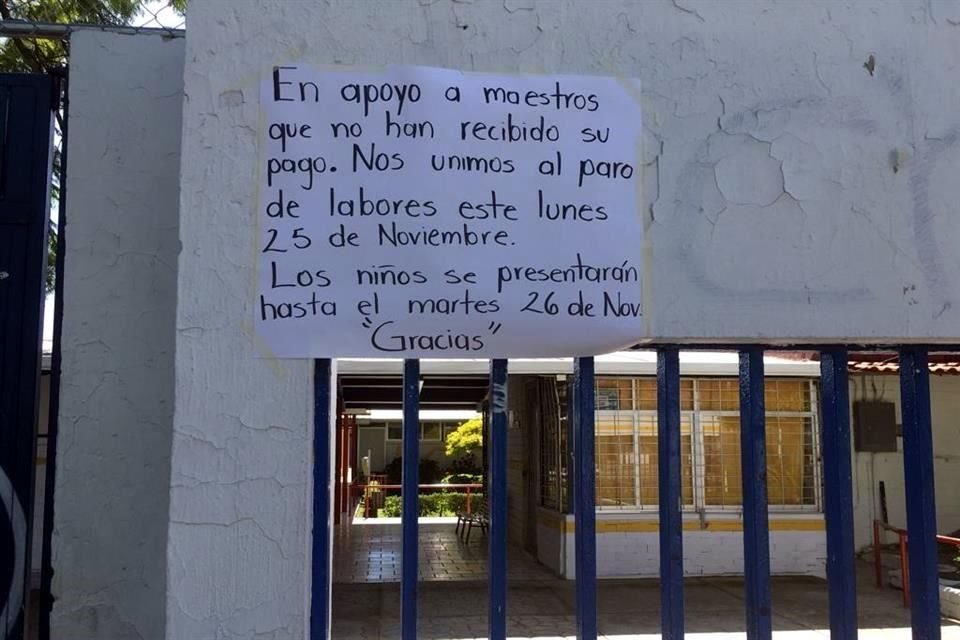 En apoyo a maestros
que no han recibido su
pago. Nos unimos al paro
de labores este lunes
25 de Noviembre.
Los niños se presentarán
hasta el martes 26 de Nov.
"Gracias"